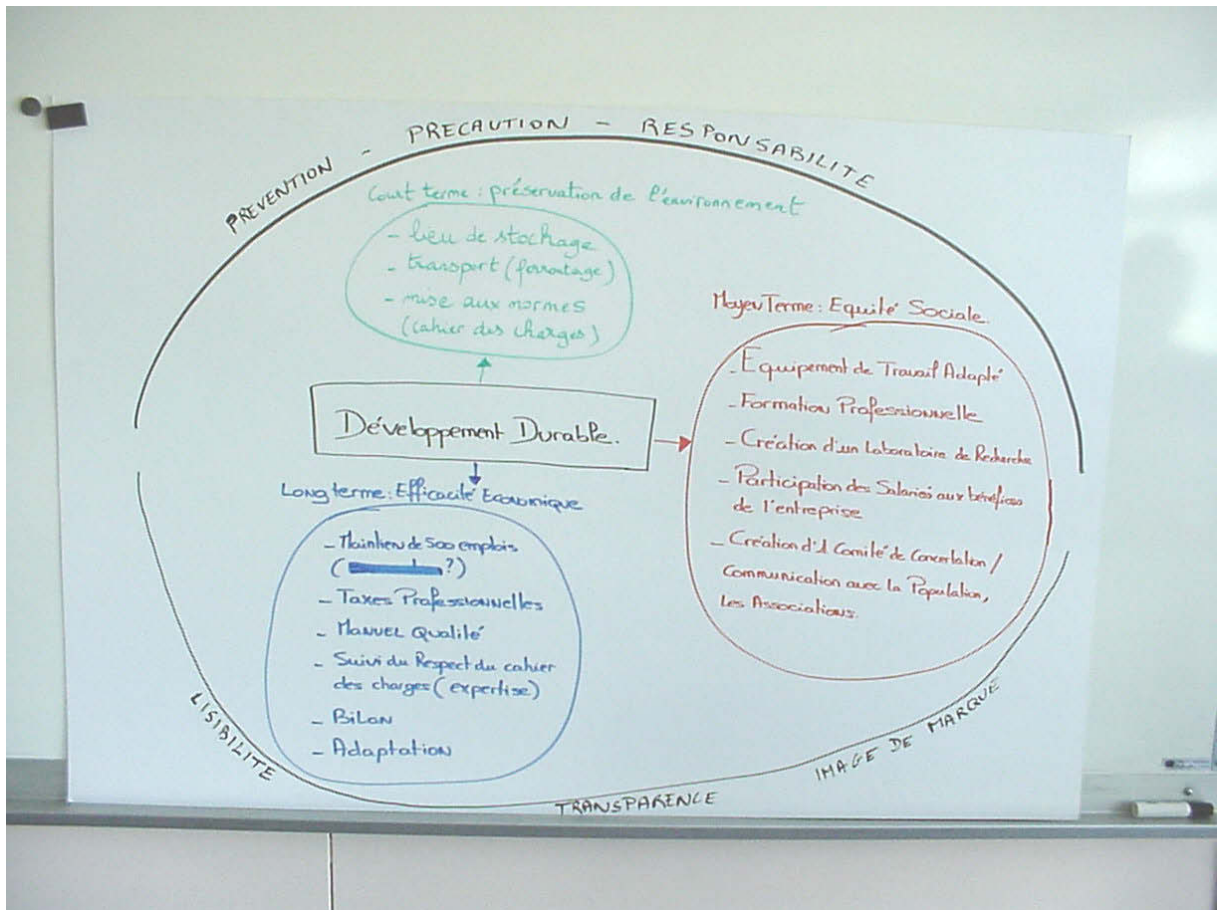 PREVENTION - PRECAUTION - RESPONSABILITE
Court terme : préservation de l'environnement
- lieu de stockage
- transport (ferroutage)
- mise aux normes
(cahier des charges)
Développement Durable.
Moyen Terme : Equité Sociale.
- Equipement de Travail Adapté
- Formation Professionnelle
- Création d'un Laboratoire de Recherche
- Participation des Salariés aux bénéfices
de l'entreprise
- Création d'1 Comité de Concertation /
Communication avec la Population,
les Associations.
Long terme : Efficacité Economique
- Maintien de 500 emplois
( ?)
- Taxes Professionnelles
- Manuel Qualité
- Suivi du Respect du cahier
des charges (expertise)
- Bilan
- Adaptation
LISIBILITE
TRANSPARENCE
IMAGE DE MARQUE